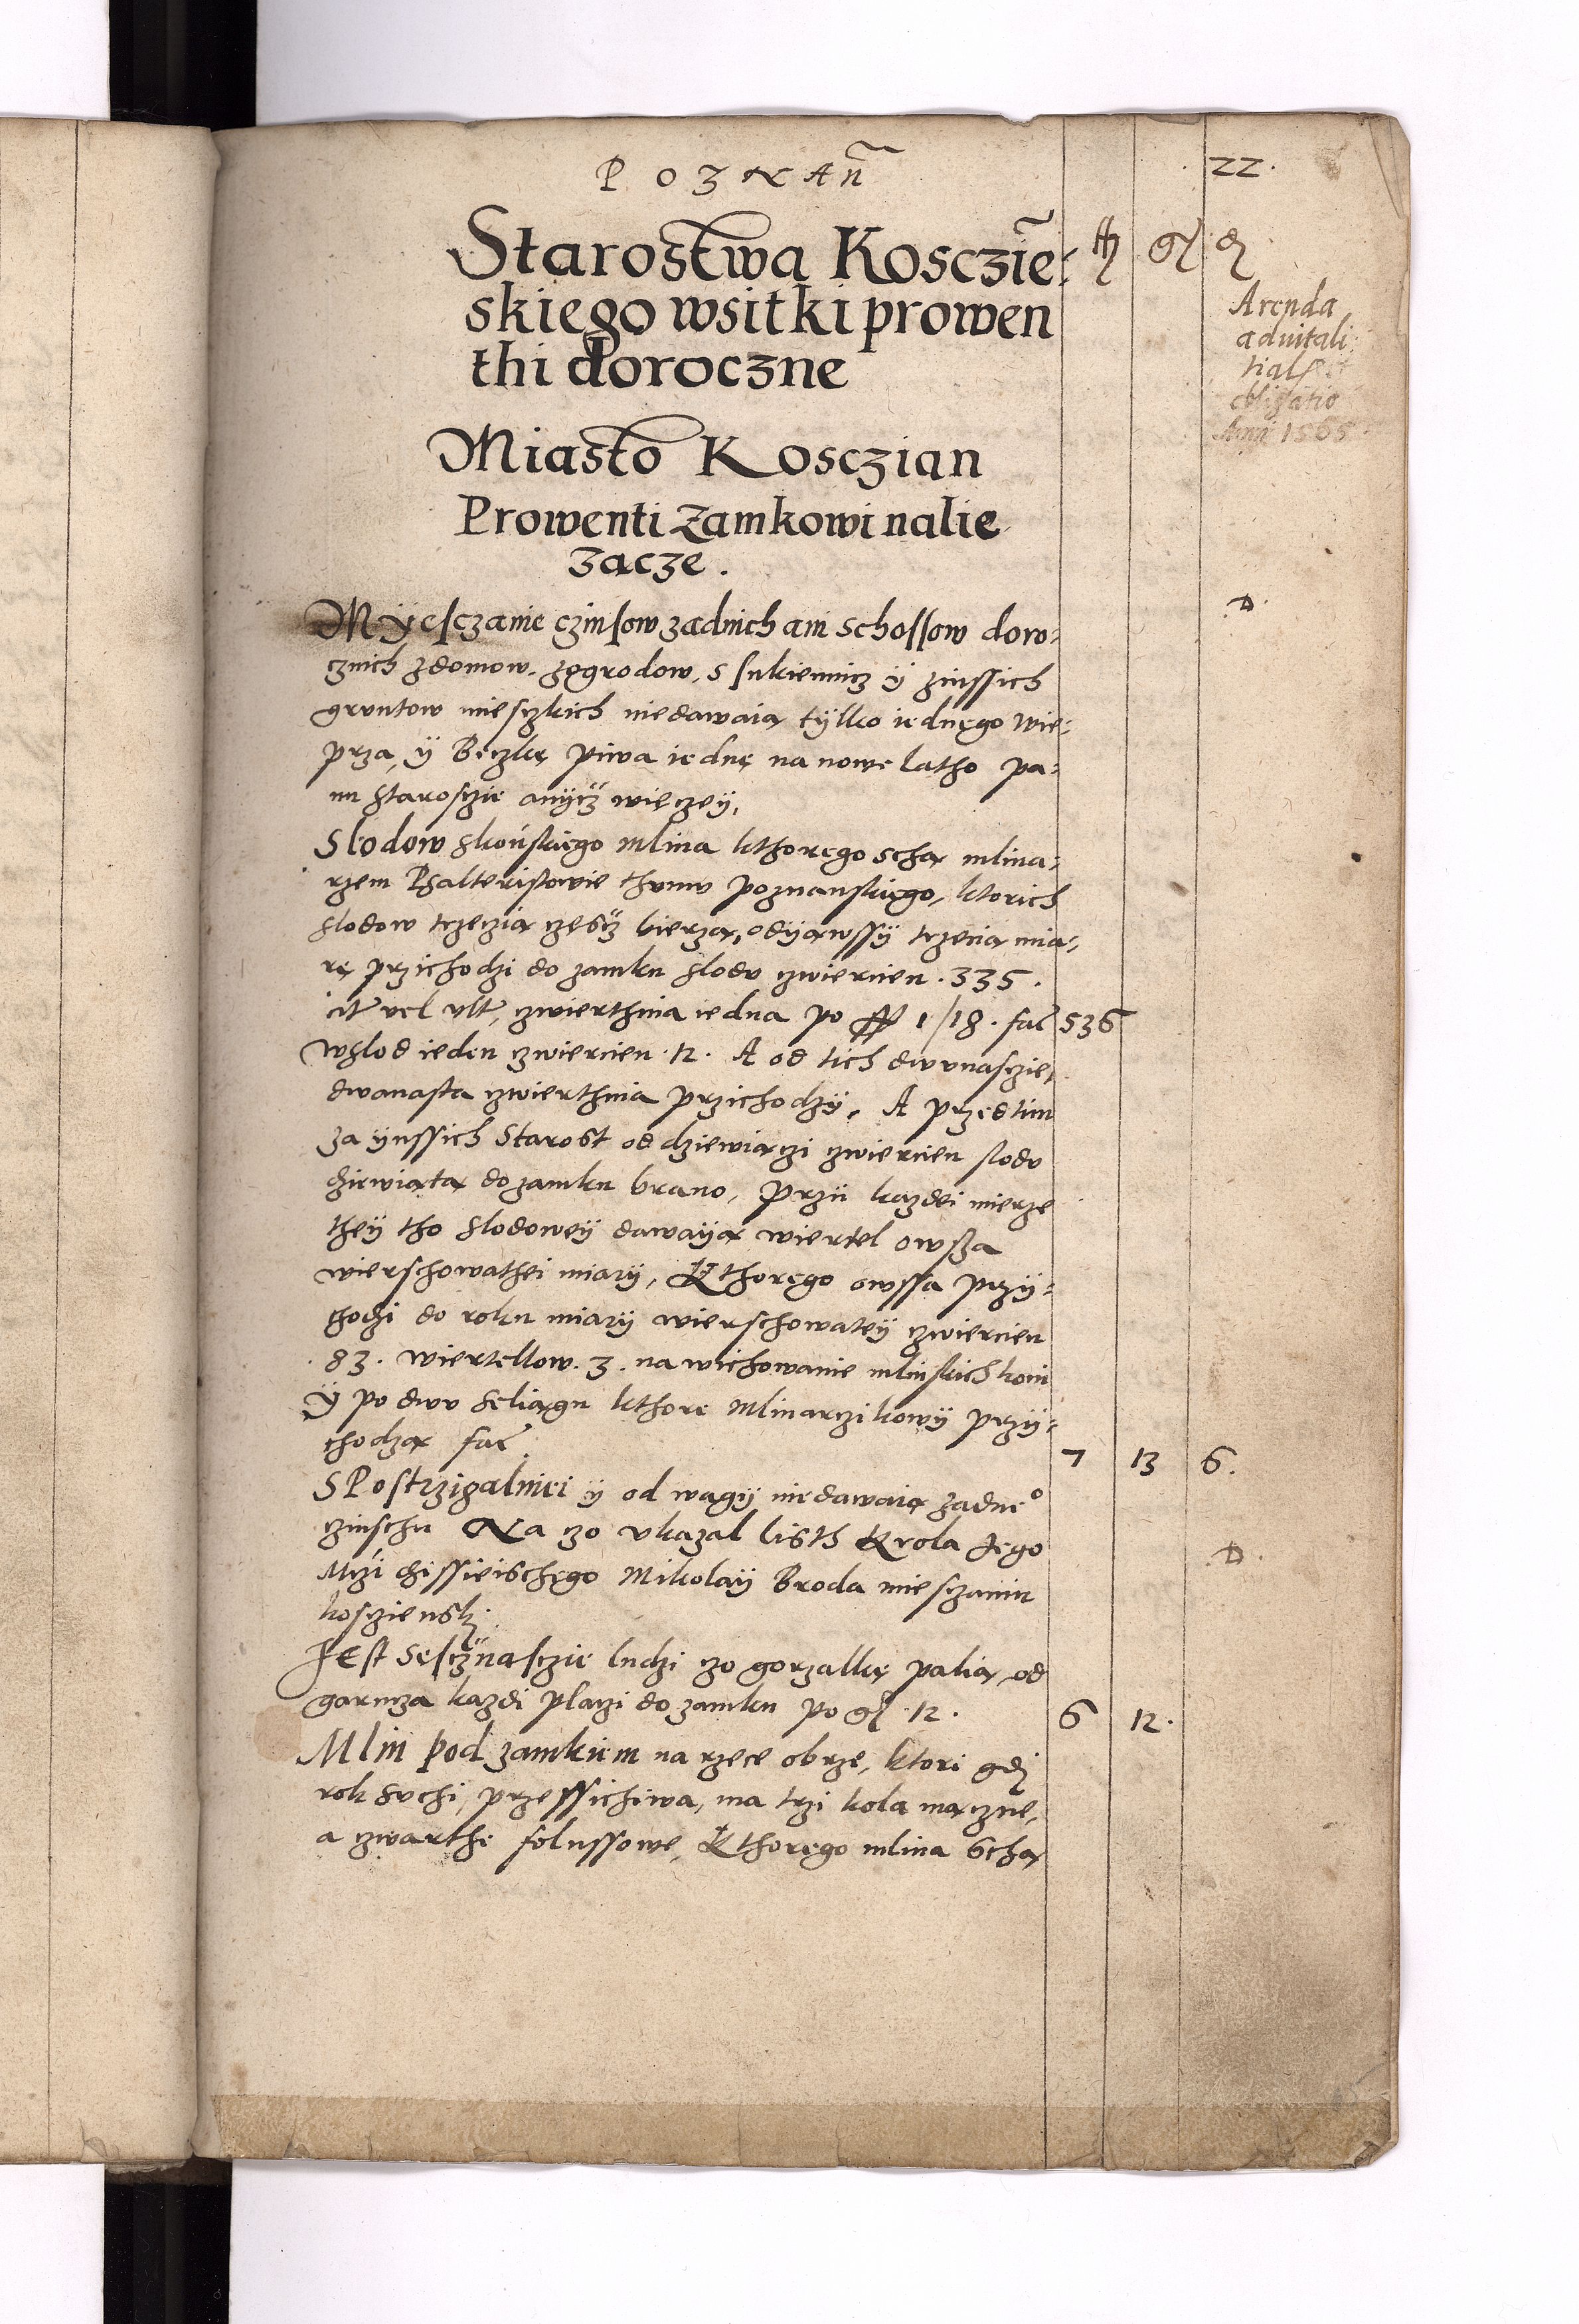 POZNAn̄
22.
Starostwa Koscziē:
skiego wsitki prowen
thi doroczne
Arenda
aduitali
tial
obligatio
Anni 1565
Miasto Kosczian
Prowenti Zamkowi nalie
zacze.
Myesczanie czinsow zadnich ani schossow doro:
cznich z domow, z ogrodow, s sukiennicz ÿ z inssich
gruntow miesczkich niedawaią tÿlko iednęgo wie:
prza, ÿ Beczkę piwa iednę na nowe latho pa:
nu staroszczie anÿcz wieczeÿ,
Slodow skońskięgo mlina kthoręgo scha mlina:
rzem Psalteristowie thumu poznanskięgo, ktorich
slodow trzeczią czescz bierzą, odÿawssÿ trzecią mia:
rę przichodzi do zamku slodu czwiercien . 335 .
czwierthnia iedna po 1/18 . fac 536
w slod ieden czwiercien . 12 . A od tich dwunasczie,
dwanasta czwierthnia przichodzÿ, A przed tim
za ÿnssich Starost od dziewiączi czwiercien slodu
dziewiąta do zamku brano, przÿ kazdei mierze
theÿ tho slodoweÿ dawaÿą wiertel owssa
wierschowathei miarÿ, Kthoręgo owssa przÿ:
chodzi do roku miarÿ wierschowateÿ czwiercien
. 83 . wiertellow . 3 . na wichowanie mlinskich koni
ÿ po dwu seliągu kthore mlinarczikowÿ przÿ:
chodzą fac 7 13 6.
S Postrzigalnici ÿ od wagÿ niedawaią zadne°
czinschu Na czo ukazal listh Krola Jego
Mczi dzissieischęgo Mikolaÿ Broda miesczanin
kosczienskj.
JEst Sesczÿnasczie ludzi czo gorzalkę palią, od
garncza kazdi placzi do zamku po gſ . 12 . 6 12.
Mlin pod zamkiem na rzece obrze, ktori gdj
rok suchi, przessichiwa, ma trzi kola mączne,
a czwarthe folussowe, Kthoręgo mlina scha